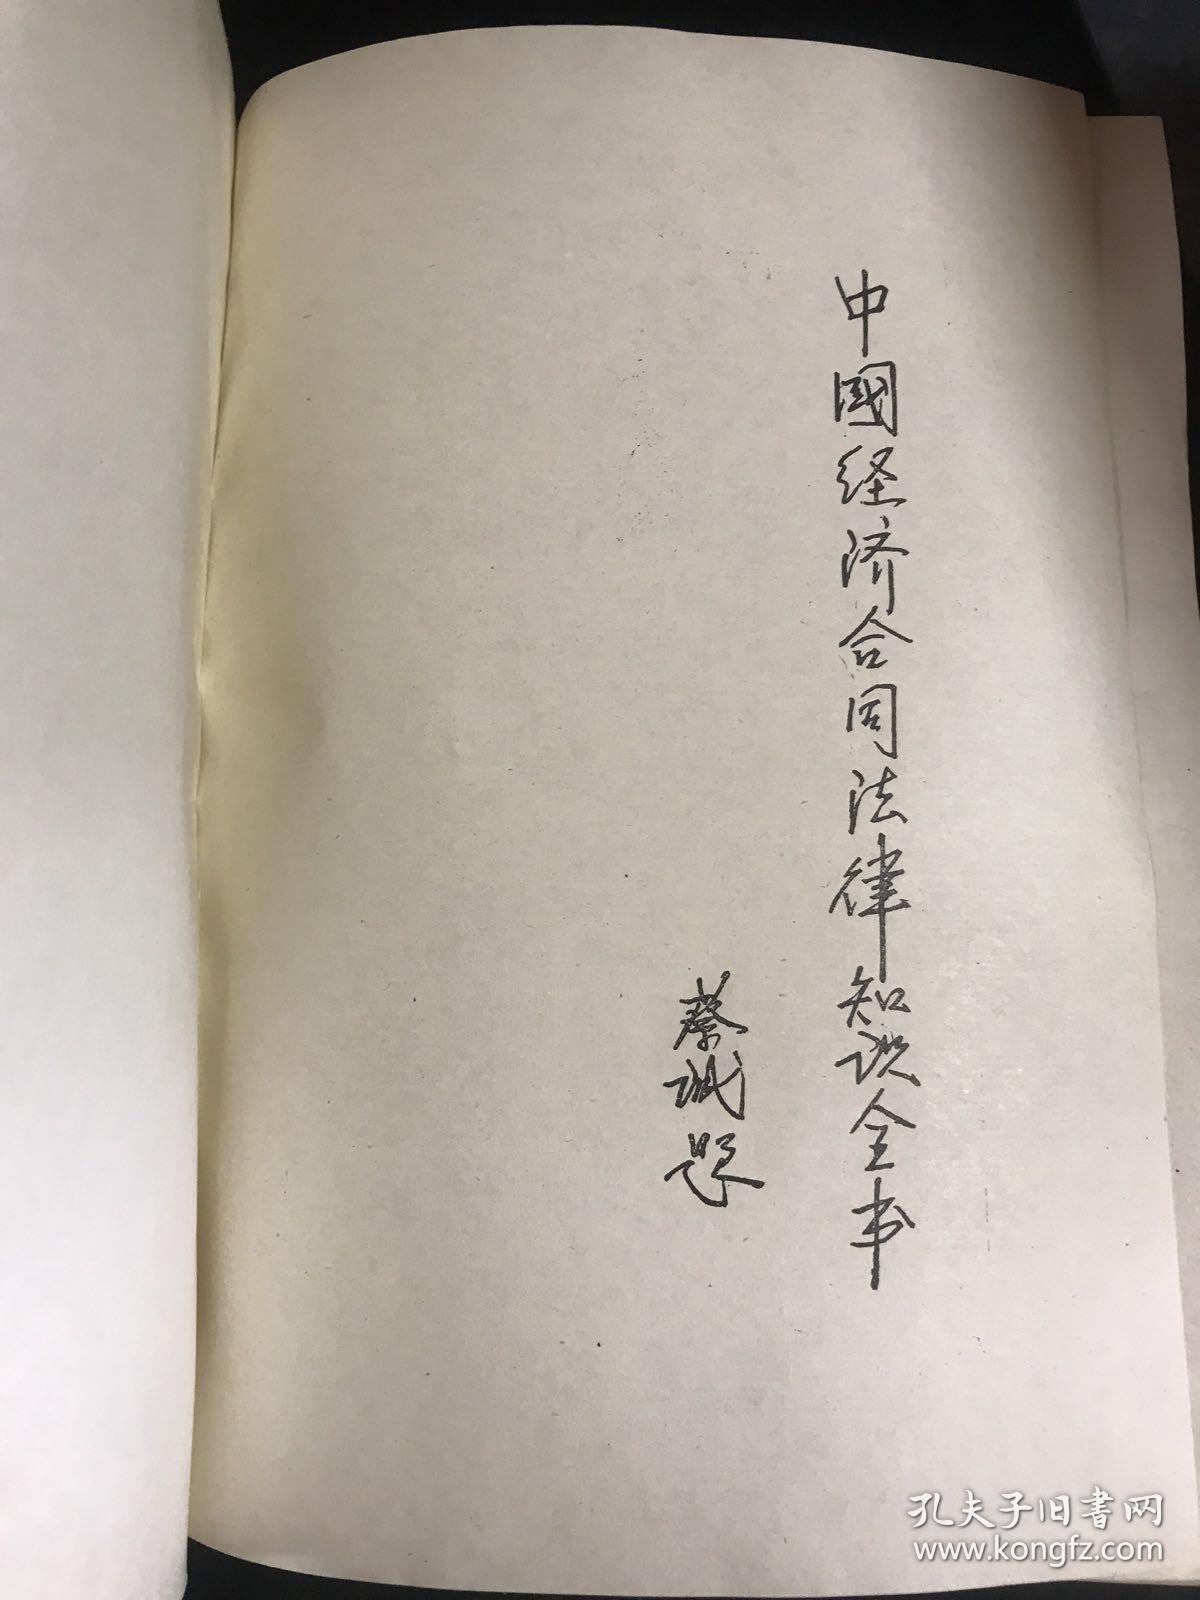 中國经济合同法律知识全书
蔡诚题
孔夫子旧書网
www.kongfz.com